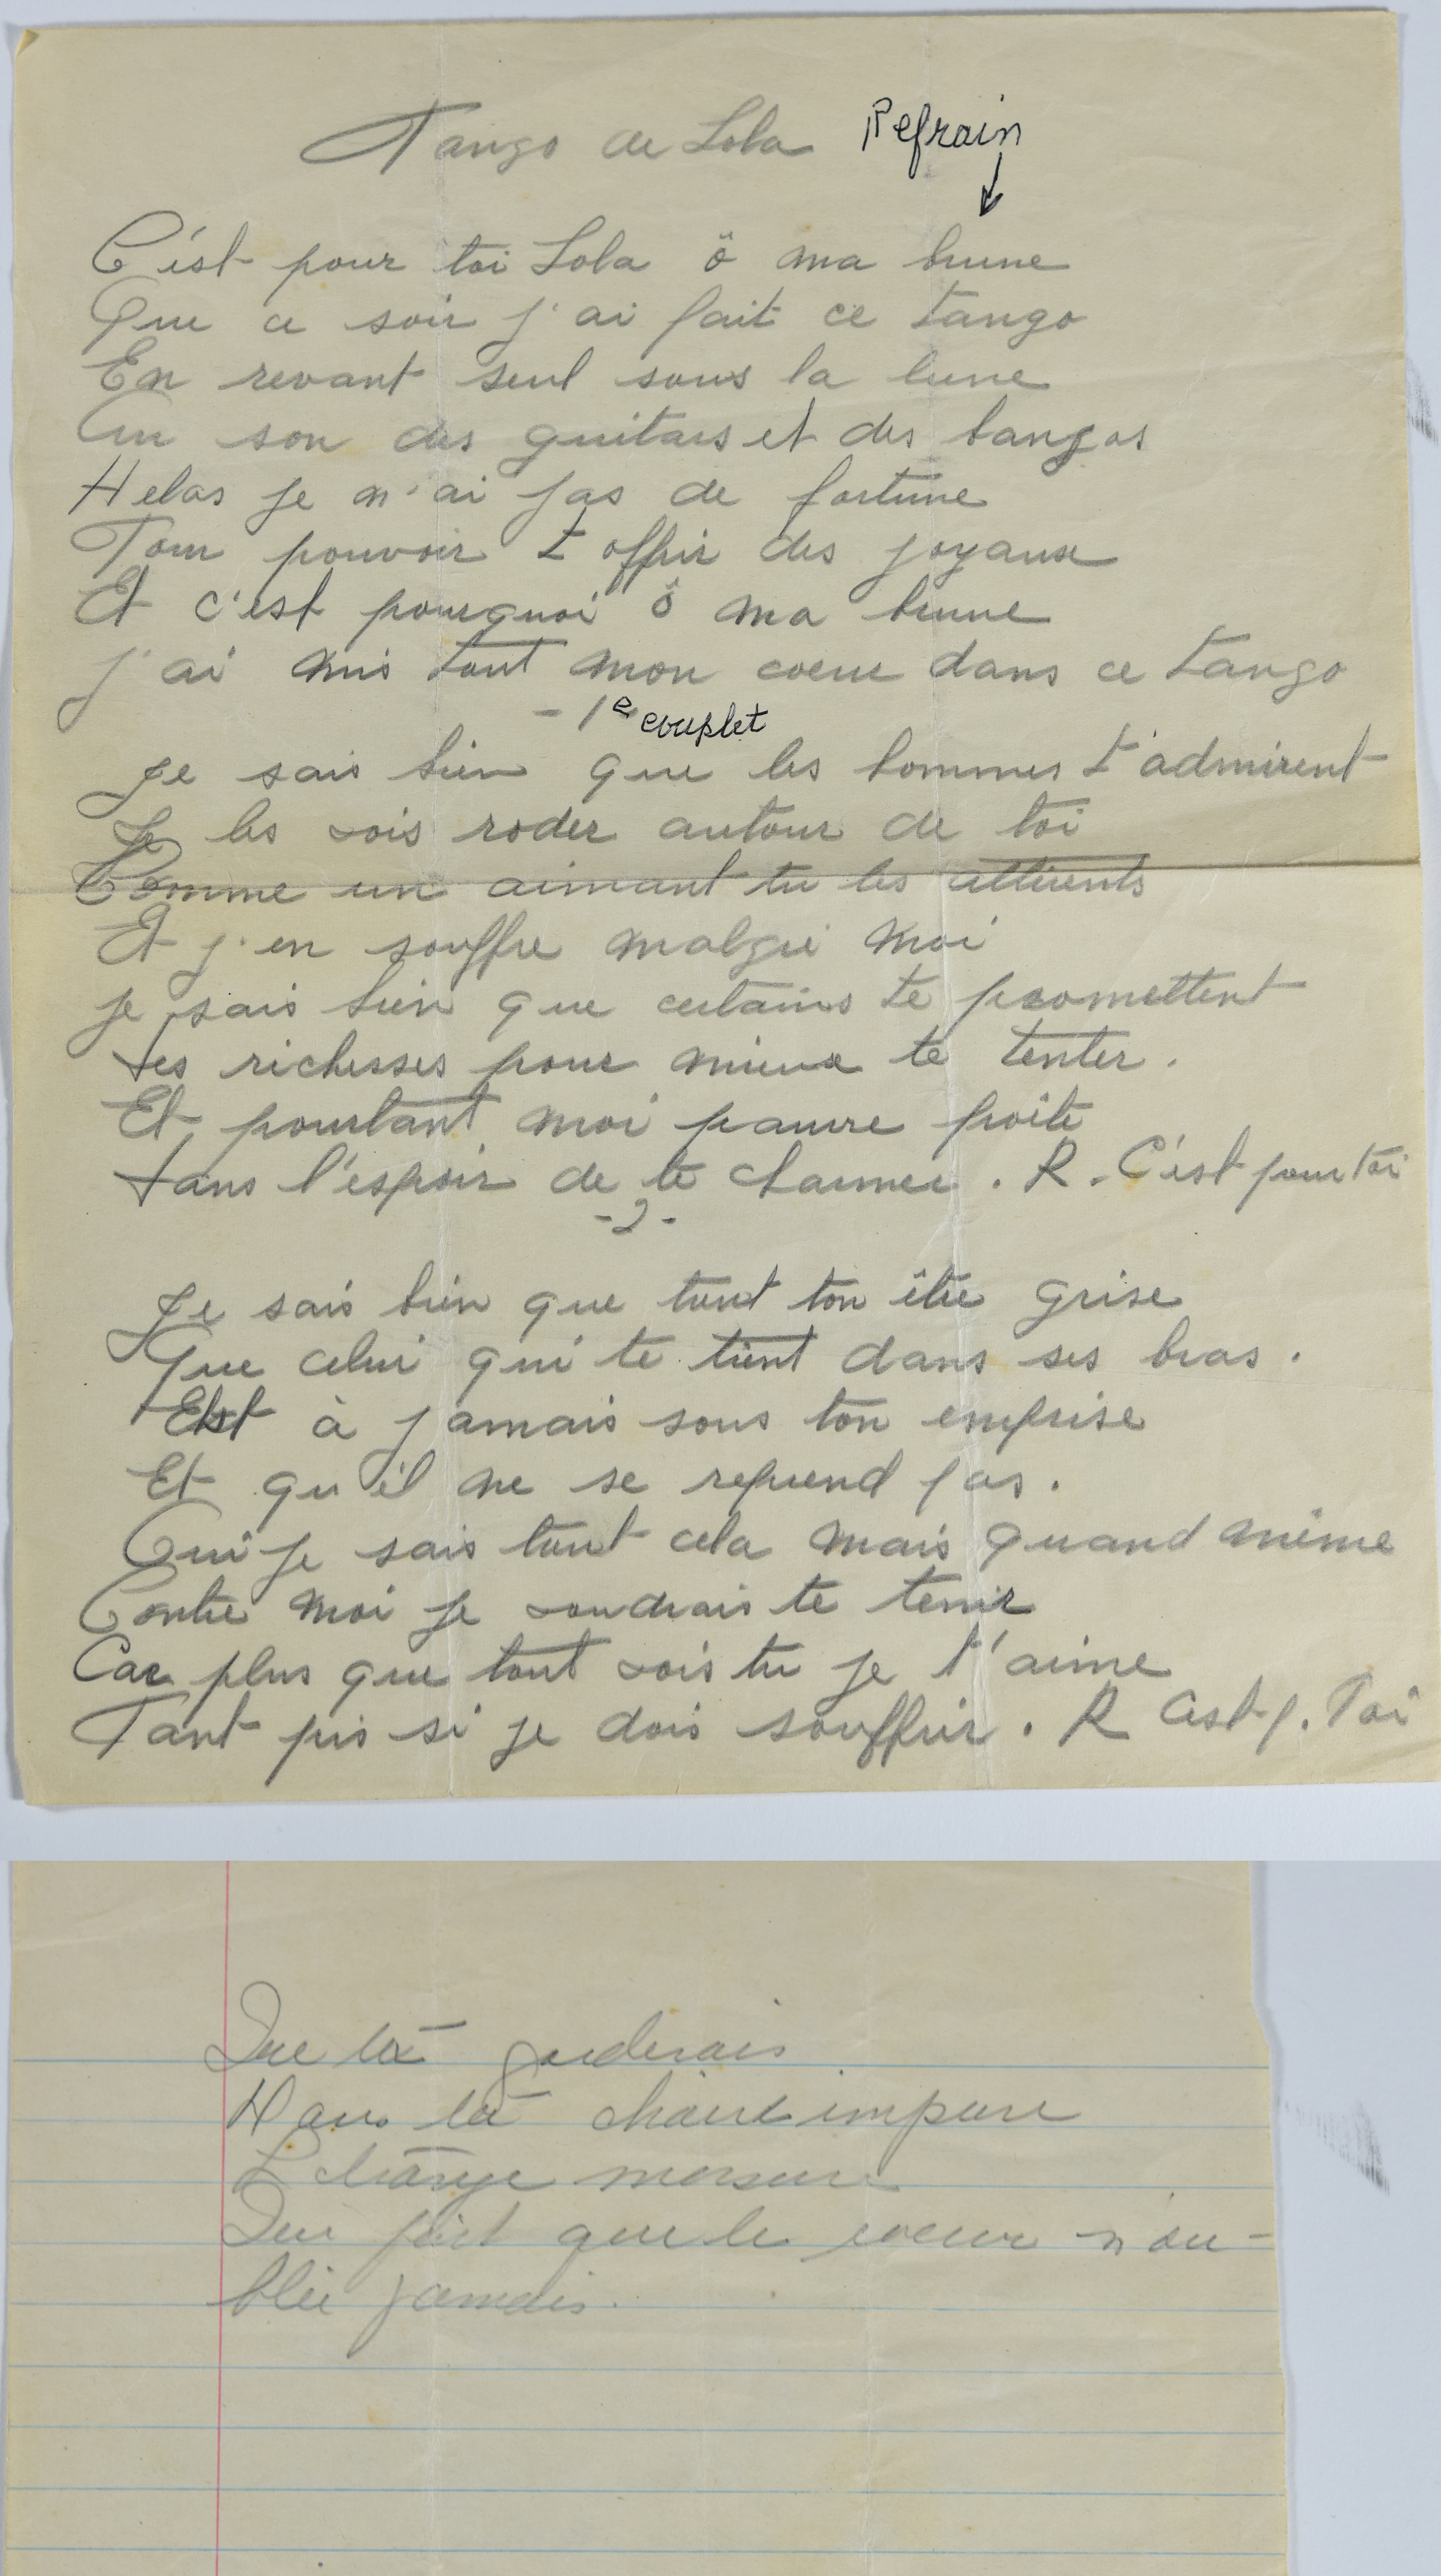 Tango de Lola Refrain
C'est pour toi Lola ô ma brune
Que ce soir j'ai fait ce tango
En revant seul sous la lune
Au son des guitars et des bangos
Helas je n'ai pas de fortune
Pour pouvoir t offrir des joyaux
Et c'est pourquoi ô ma brune
j'ai mis tout mon coeur dans ce tango
- 1e couplet
Je sais bien que les hommes t'admirent
Je les vois roder autour de toi
Comme un aimant tu les attirents
Et j'en souffre malgré moi
je sais bien que certains te promettent
Des richesses pour mieux te tenter.
Et pourtant moi pauvre poête
Dans l'espoir de te charmer. R. C'est pour toi
- 2 -
Je sais bien que tout ton être grise
Que celui qui te tient dans ses bras.
Est à jamais sous ton emprise
Et qu'il ne se reprend pas.
Oui je sais tout cela mais quand même
Contre moi je voudrais te tenir
Car plus que tout vois tu je t'aime
Tant pis si je dois souffrir. R C'est p. Toi
Que ta garderais
Dans ta chaire impure
L etrange morsure
Que fait que le coeur n'ou-
blie jamais.